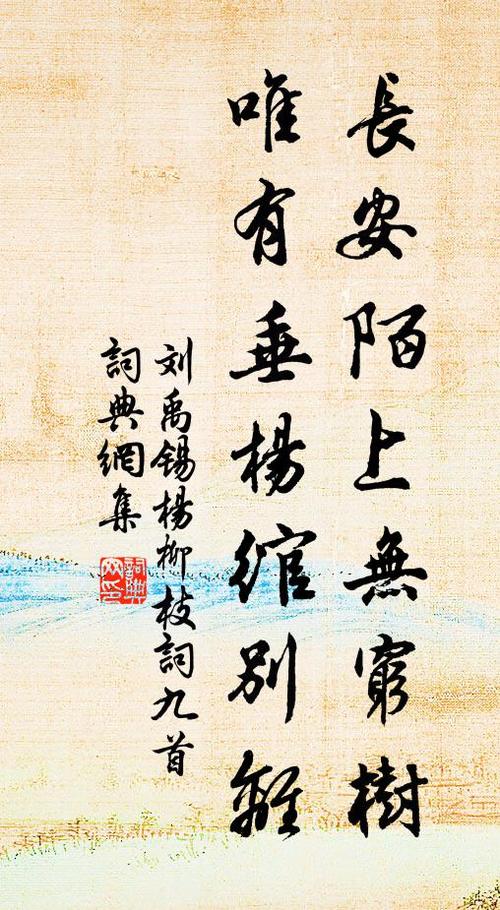 長安陌上無窮樹
唯有垂楊綰別離
刘禹锡杨柳枝詞九首
詞典網集